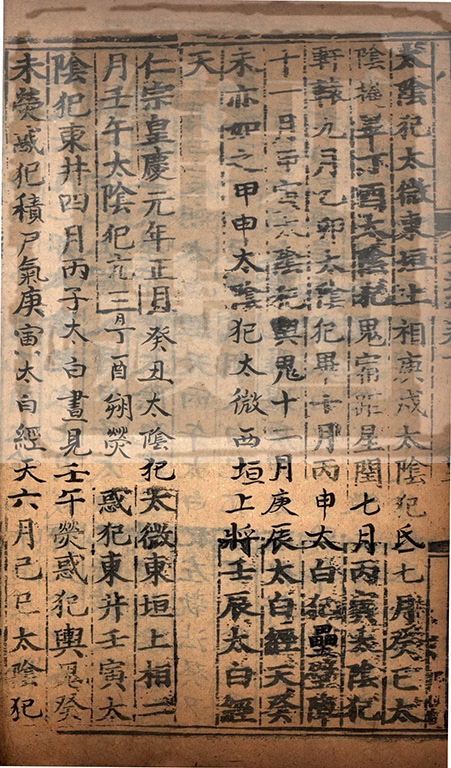 太陰犯太微東垣上相庚戌太陰犯氐七月癸巳太
陰掩畢丁酉太陰犯鬼宿距星閏七月丙寅太陰犯
軒轅九月乙卯太陰犯畢十月丙申太白犯壘壁陣
十一月甲寅太陰犯輿鬼十二月庚辰太白經天癸
未亦如之甲申太陰犯太微西垣上將壬辰太白經
天
仁宗皇慶元年正月癸丑太陰犯太微東垣上相二
月壬午太陰犯亢三月丁酉朔熒惑犯東井壬寅太
陰犯東井四月丙子太白晝見壬午熒惑犯輿鬼癸
未熒惑犯積尸氣庚寅太白經天六月己巳太陰犯